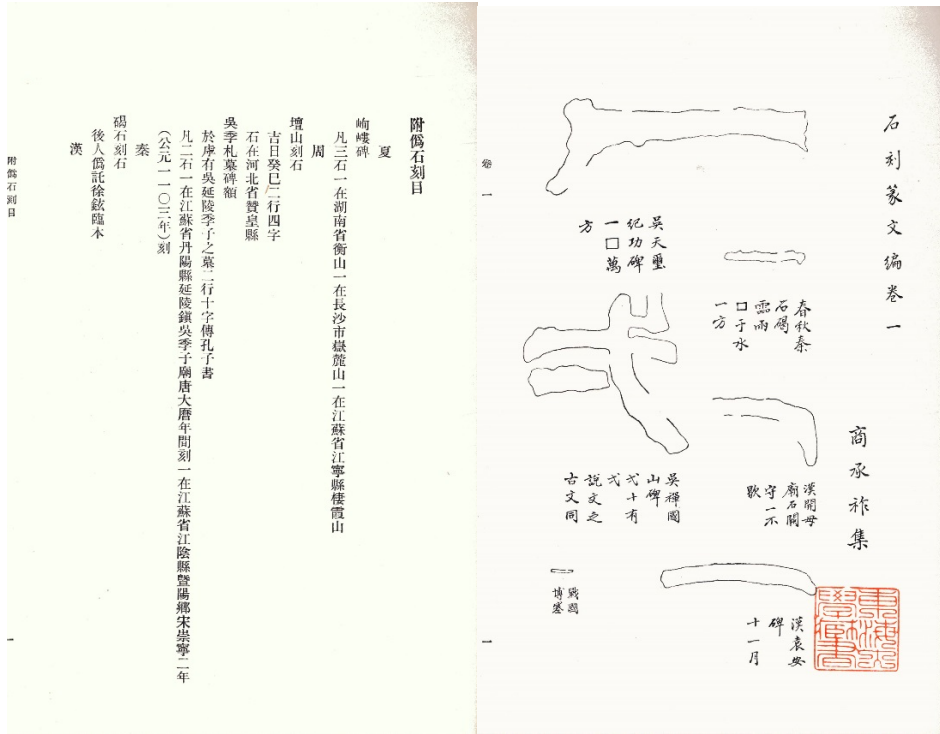 石刻篆文編卷一
商承祚集
春秋秦
石碣
霝雨
□于水
一方
漢開母
廟石闕
守一不
歇
漢袁安
碑
十一月
吳天璽
紀功碑
一□萬
方
吳禪國
山碑
弌十有
弌
說文之
古文同
戰國
博塞
卷一
一
附僞石刻目
夏
岣嶁碑
凡三石一在湖南省衡山一在長沙市嶽麓山一在江蘇省江寧縣棲霞山
周
壇山刻石
吉日癸巳二行四字
石在河北省贊皇縣
吳季札墓碑額
於虖有吳延陵季子之墓二行十字傳孔子書
凡二石一在江蘇省丹陽縣延陵鎭吳季子廟唐大曆年間刻一在江蘇省江陰縣曁陽鄉宋崇寧二年
(公元一一〇三年)刻
秦
碣石刻石
後人僞託徐鉉臨本
漢
附僞石刻目
一